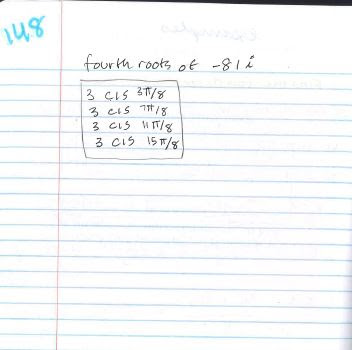 148
fourth roots of -81i
3 cis 3π/8
3 cis 7π/8
3 cis 11π/8
3 cis 15π/8